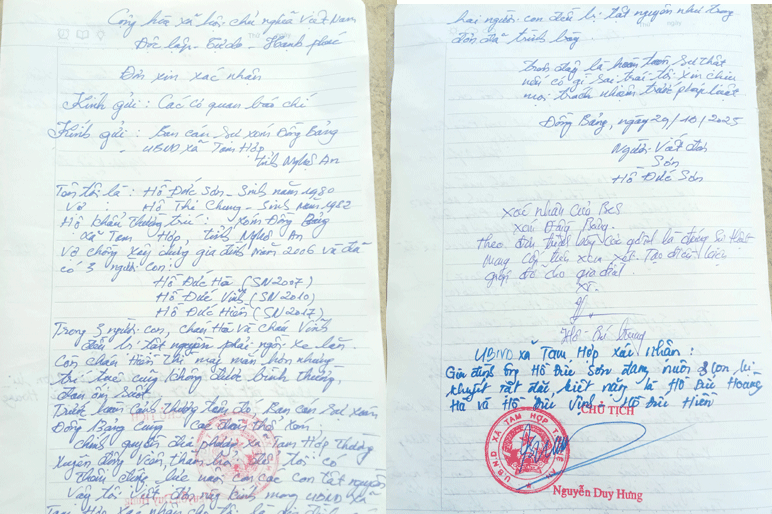 Cộng hòa xã hội chủ nghĩa Việt Nam
Độc lập - Tự do - Hạnh phúc
Đơn xin xác nhận
Kính gửi: Các cơ quan báo chí
Kính gửi: Ban cán sự xóm Đồng Bảng
UBND xã Tam Hợp
tỉnh Nghệ An
Tên tôi là: Hồ Đức Sơn - Sinh năm 1980
Vợ : Hồ Thị Chung - Sinh năm 1982
Hộ khẩu thường trú: Xóm Đồng Bảng
Xã Tam Hợp, tỉnh Nghệ An
Vợ chồng xây dựng gia đình năm 2006 và đã
có 3 người con:
Hồ Đức Hà (SN 2007)
Hồ Đức Vĩnh (SN 2010)
Hồ Đức Hiển (SN 2017)
Trong 3 người con, cháu Hà và cháu Vĩnh
đều bị tật nguyền phải ngồi xe lăn
Còn cháu Hiển thì may mắn hơn nhưng
trí tuệ cũng không được bình thường,
đau ốm suốt.
Trước hoàn cảnh thương tâm đó Ban cán sự xóm
Đồng Bảng cùng các đoàn thể xóm,
chính quyền địa phương xã Tam Hợp thường
xuyên động viên, thăm hỏi để tôi có
thêm động lực nuôi con các con tật nguyền
Vậy tôi viết đơn này kính mong UBND xã
Tam Hợp xác nhận cho tôi là gia đình có
hai người con đều bị tật nguyền như trong
đơn đã trình bày.
trên đây là hoàn toàn sự thật
nếu có gì sai trái tôi xin chịu
mọi trách nhiệm trước pháp luật
Đồng Bảng, ngày 29/10/2025
Người viết đơn
Sơn
Hồ Đức Sơn
Xác nhận của BCS
xóm Đồng Bảng.
theo đơn trình bày của gđình là đúng sự thật
mong cấp trên xem xét. Tạo điều kiện
giúp đỡ cho gia đình.
XT.
UBND xã Tam Hợp xác nhận:
Gia đình ông Hồ Đức Sơn đang nuôi 3 con bị
khuyết tật đặc biệt nặng là Hồ Đức Hoàng
Hà và Hồ Đức Vĩnh, Hồ Đức Hiển
CHỦ TỊCH
U.B.N.D XÃ TAM HỢP
Nguyễn Duy Hưng